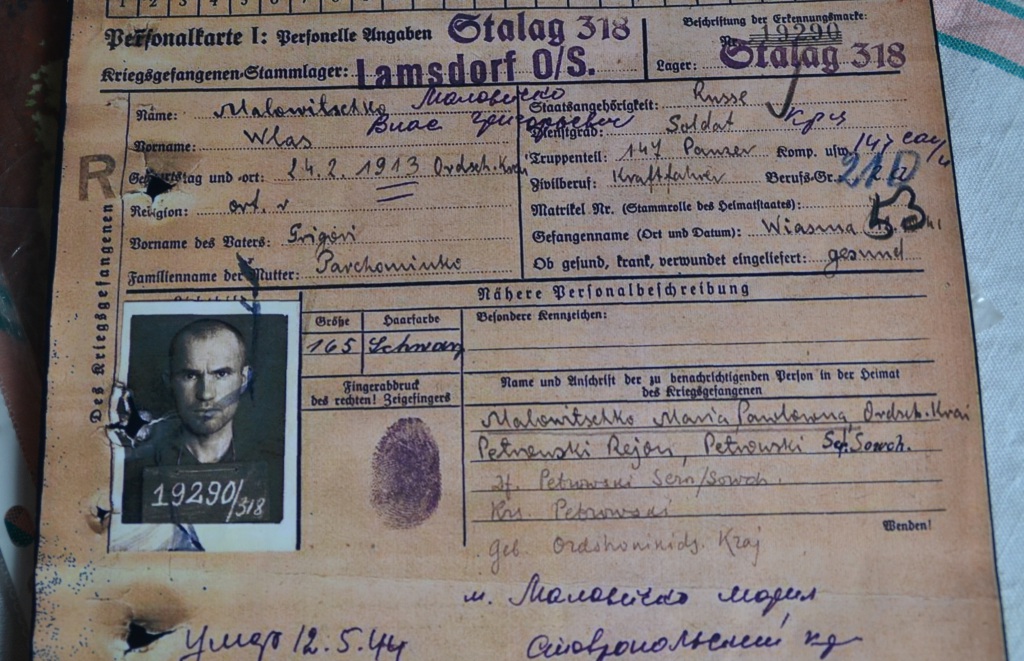 1 2 3 4 5 6 7
Personalkarte I: Personelle Angaben Stalag 318
Kriegsgefangenen-Stammlager: Lamsdorf O/S.
Beschriftung der Erkennungsmarke:
Nr. 19290
Lager: Stalag 318
Des Kriegsgefangenen
R
Name: Malowitschko Маловичко
Vorname: Wlas Влас Григорьевич
Geburtstag und -ort: 24.2.1913 Ordsch. Krai
Religion: ort.
Vorname des Vaters: Grigori
Familienname der Mutter: Parchominko
Staatsangehörigkeit: Russe
Dienstgrad: Soldat Кр-ц
Truppenteil: 147 Panzer Komp. usw. 147
Zivilberuf: Kraftfahrer Berufs-Gr.
Matrikel Nr. (Stammrolle des Heimatstaates):
53
Gefangenname (Ort und Datum): Wiasma
Ob gesund, krank, verwundet eingeliefert: gesund
Nähere Personalbeschreibung
Größe Haarfarbe
165 Schwarz
Besondere Kennzeichen:
Fingerabdruck
des rechten! Zeigefingers
Name und Anschrift der zu benachrichtigenden Person in der Heimat
des Kriegsgefangenen
Malowitschko Maria Pawlowna, Ordsch. Krai
Petrowski Rejon, Petrowski Sowch.
Petrowski Sern/Sowch.
Krs. Petrowski
Geb. Ordshonikids. Kraj
Wenden!
19290/318
м. Маловичко Мария
Умер 12.5.44 Ставропольский кр